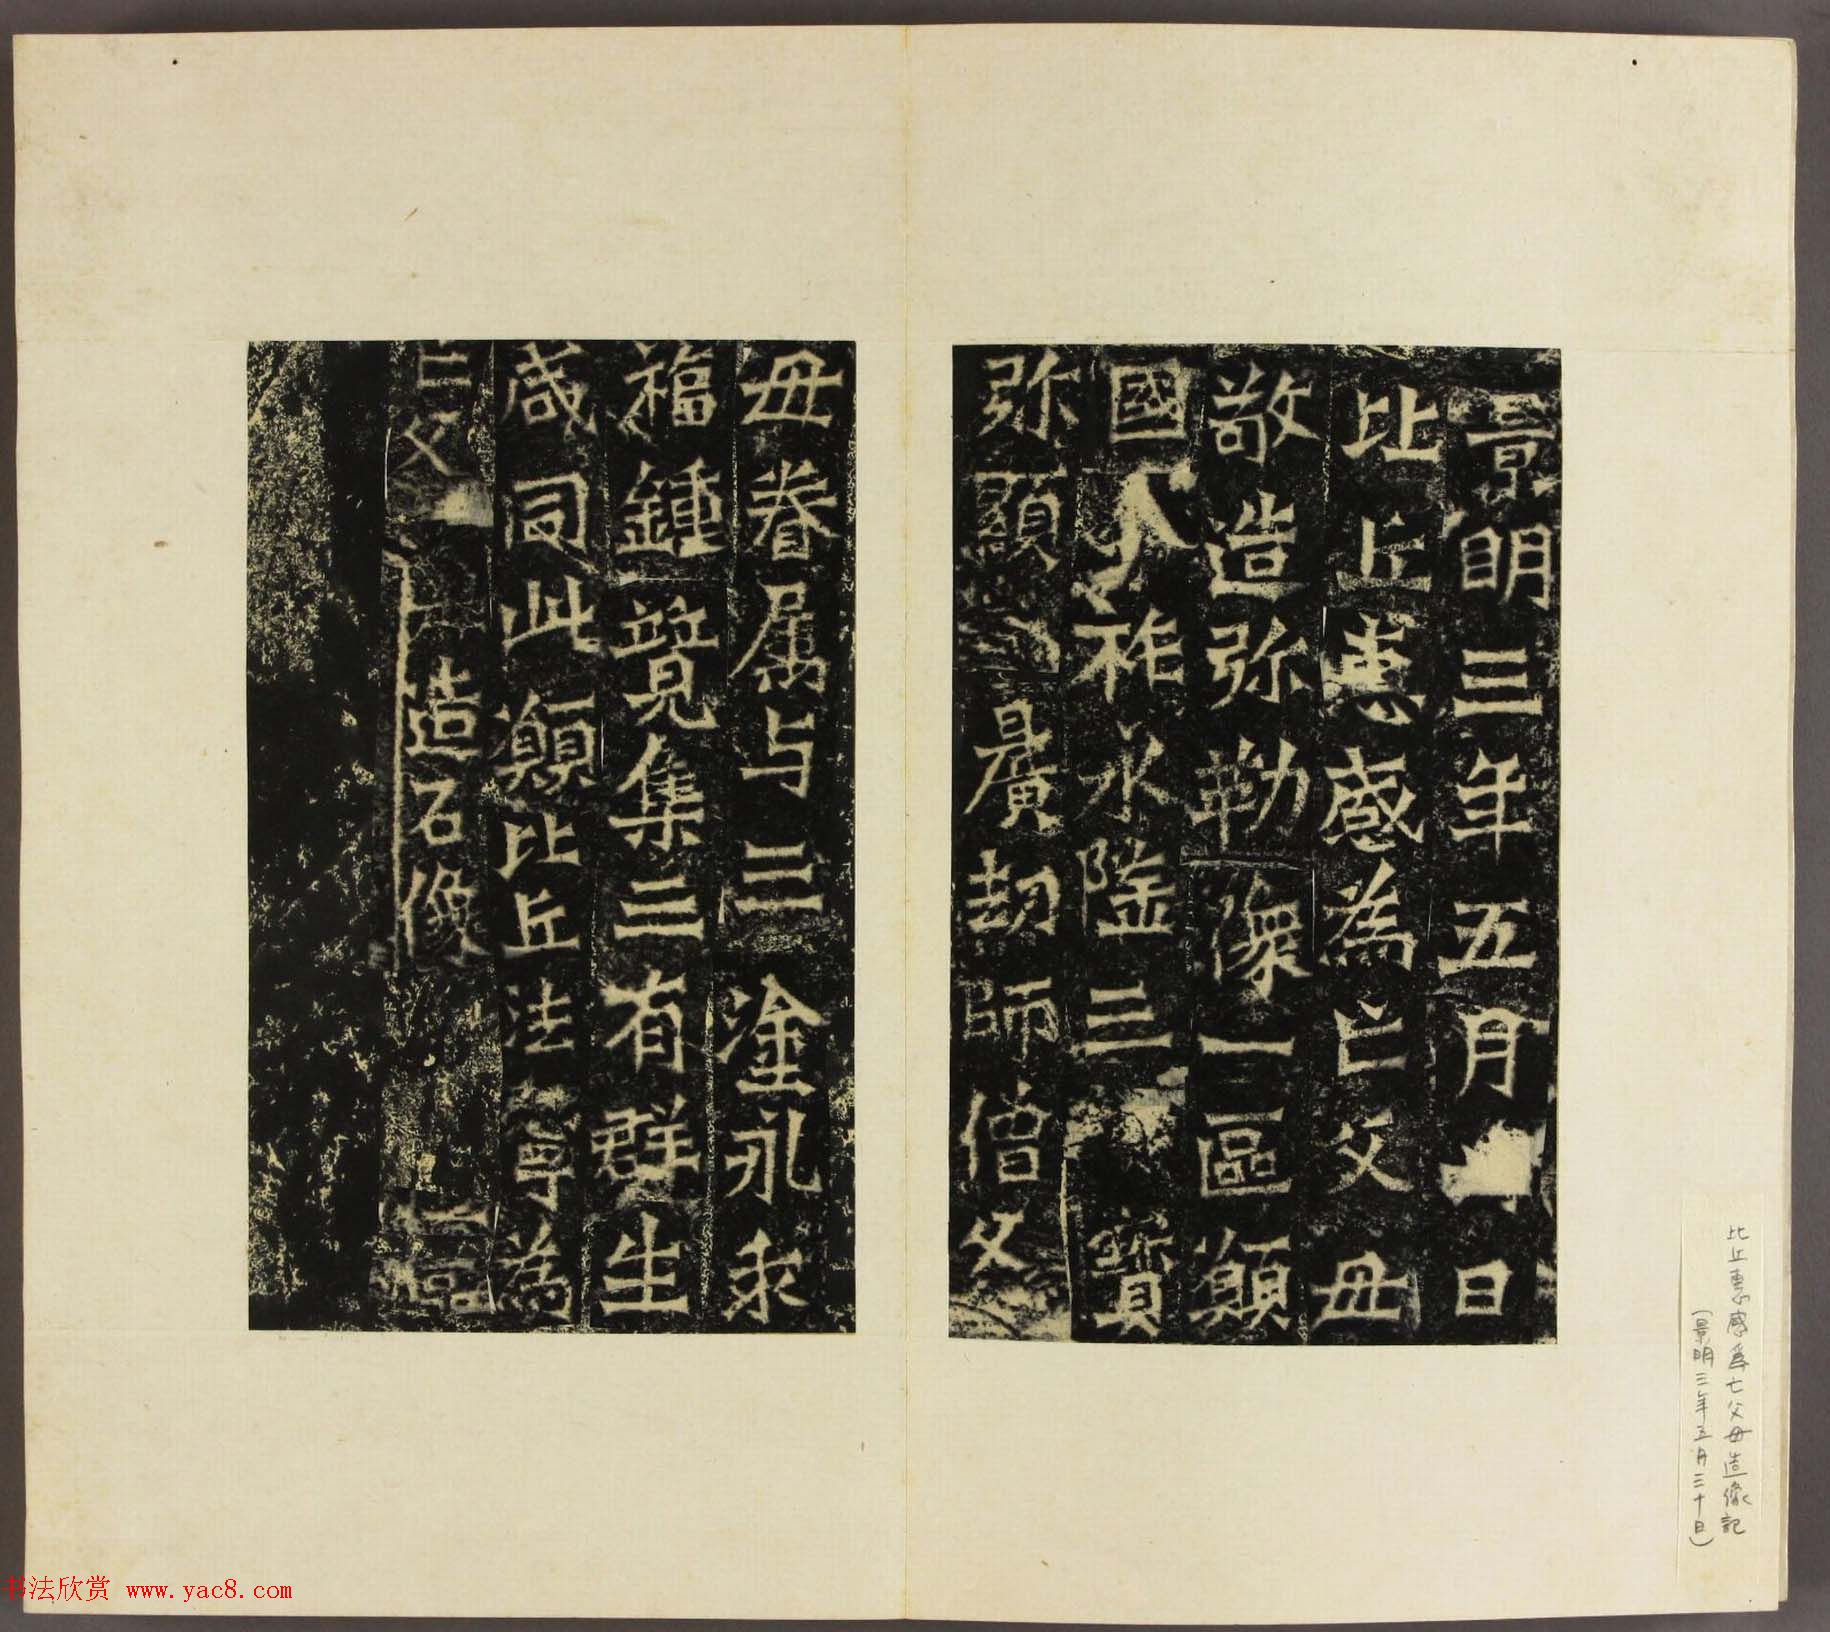 景明三年五月日
比丘惠感為亡父母
敬造弥勒像一區願
國祚永隆三寶
弥顯曠劫師僧父
母眷属与三塗永乖
福鍾覽集三有群生
咸同此願比丘法寧為
亡父造石像
比丘惠感為亡父母造像記
(景明三年五月三十日)
书法欣赏 www.yac8.com